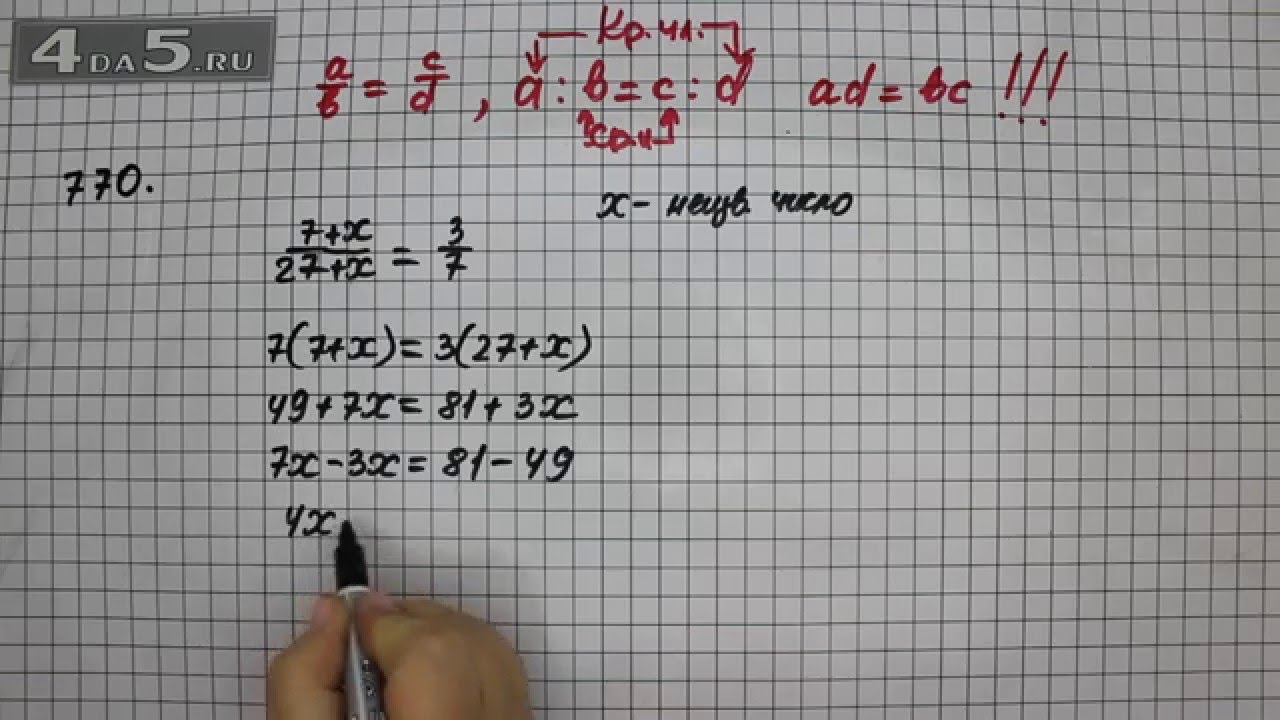 4DA5.RU
Кр.чл.
a/b = c/d , a : b = c : d ad = bc !!!
ср.ч
770.
x - неизв. число
7+x/27+x = 3/7
7(7+x)=3(27+x)
49+7x=81+3x
7x-3x=81-49
4x